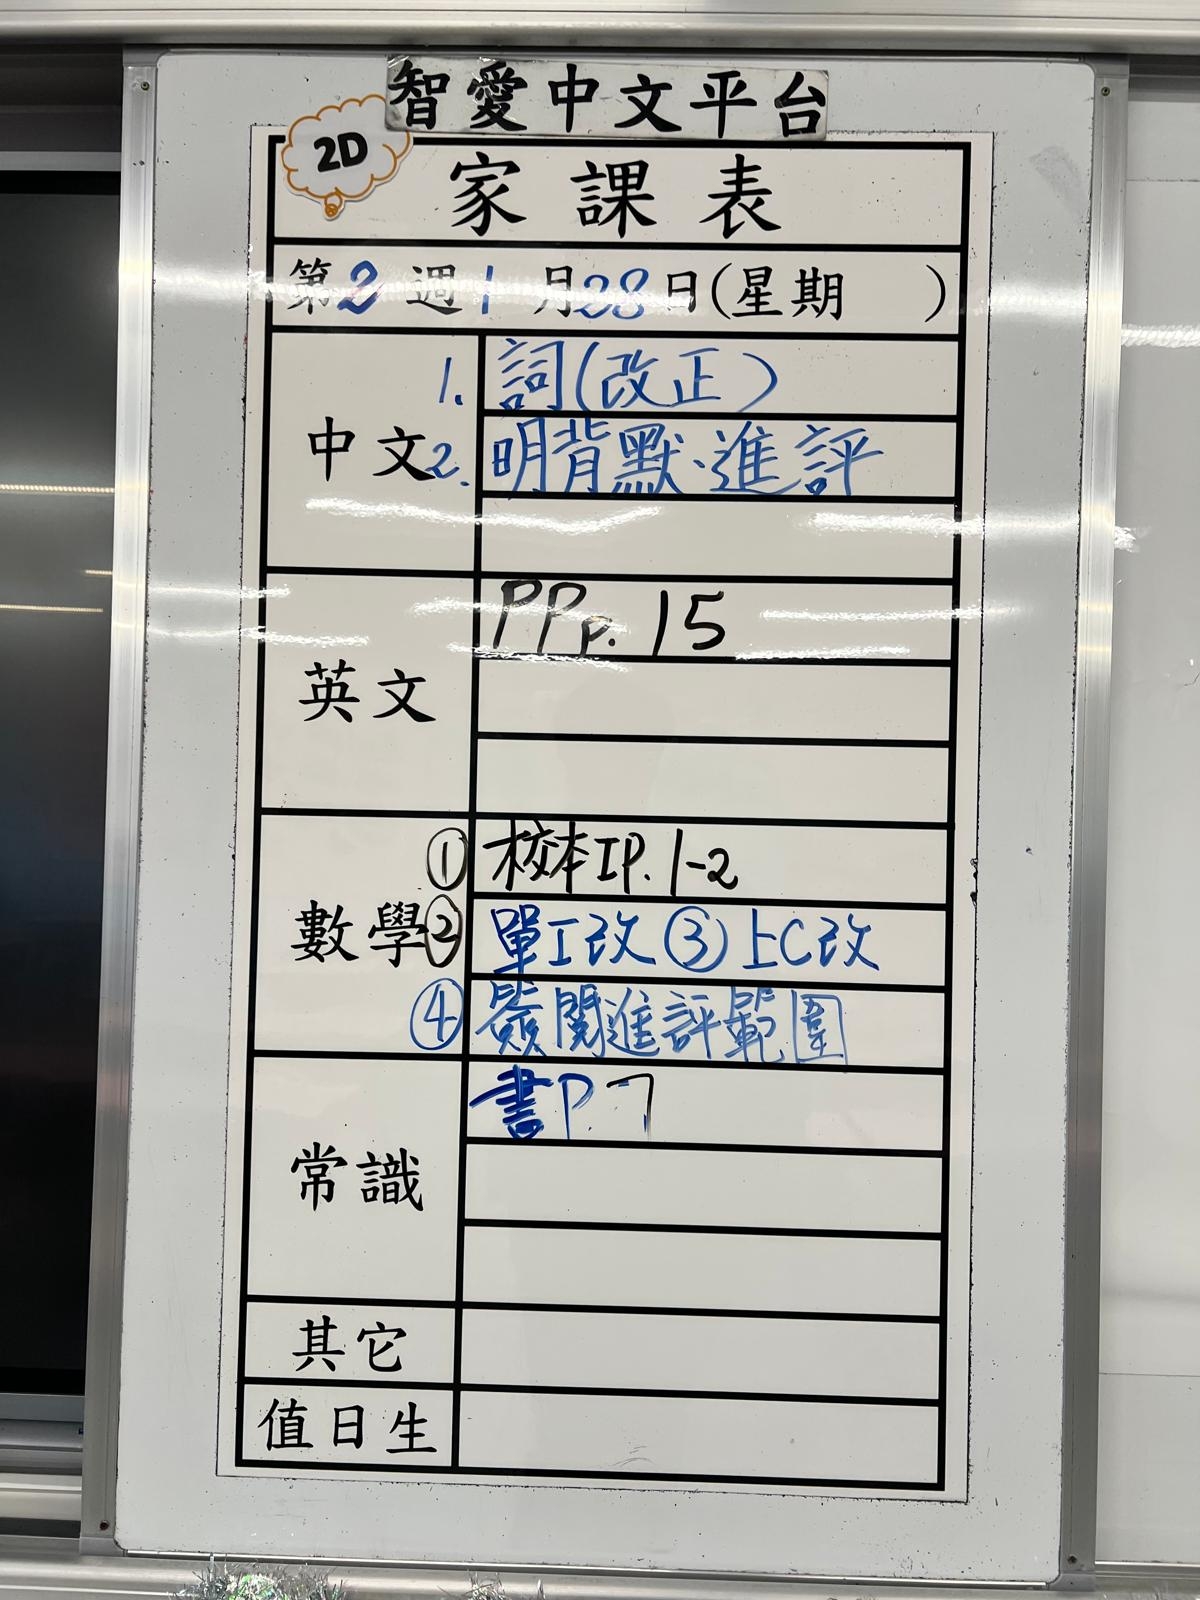 智愛中文平台
2D
家課表
第2週1月28日(星期　)
中文
1. 詞(改正)
2. 明背默、進評
英文
PPp. 15
數學
① 校本IP. 1-2
② 單I改 ③ 上C改
④ 簽閱進評範圍
常識
書P. 7
其它
值日生